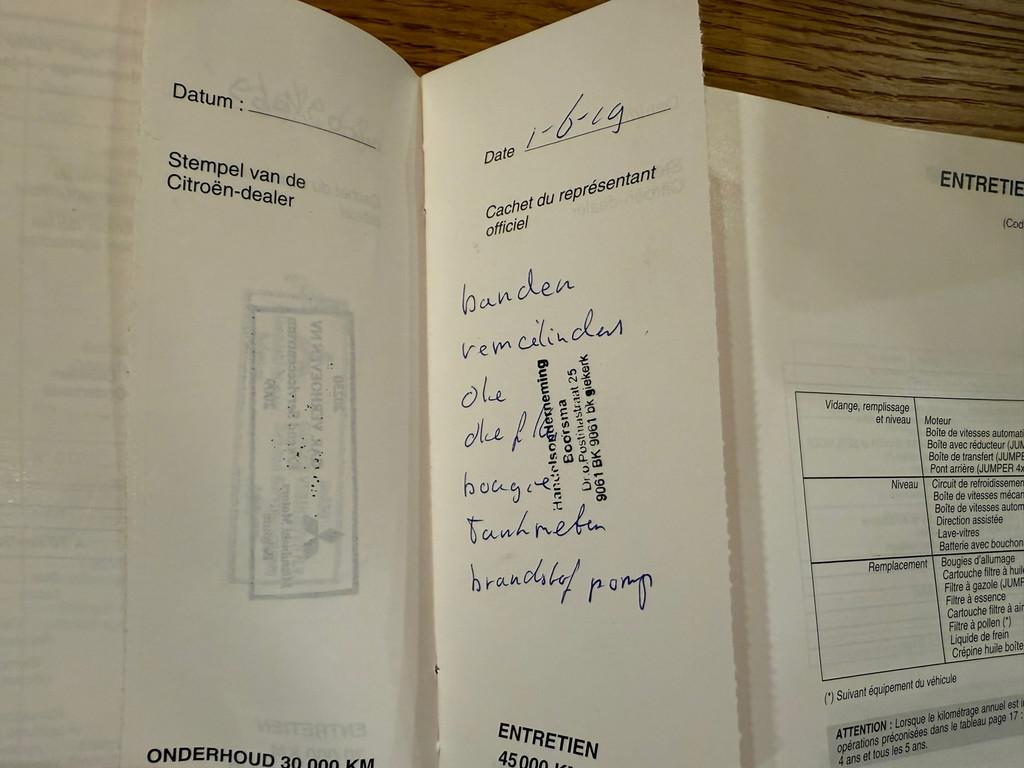 Datum :
Stempel van de
Citroën-dealer
ONDERHOUD 30 000 KM
Date 1-6-19
Cachet du représentant
officiel
banden
remcilinders
olie
olie
bougie
tankmeter
brandstof pomp
Handelsonderneming
Boorsma
9061 BK 9061 bk giekerk
ENTRETIEN
45 000
ENTRETIE
(Cod
Vidange, remplissage
et niveau
Moteur
Boîte de vitesses automati
Boîte avec réducteur (JUM
Boîte de transfert (JUMPE
Pont arrière (JUMPER 4x
Niveau
Circuit de refroidissemen
Boîte de vitesses mécan
Boîte de vitesses autom
Direction assistée
Lave-vitres
Batterie avec bouchon
Remplacement
Bougies d'allumage
Cartouche filtre à huile
Filtre à gazole (JUMP
Filtre à essence
Cartouche filtre à air
Filtre à pollen (*)
Liquide de frein
Crépine huile boîte
(*) Suivant équipement du véhicule
ATTENTION : Lorsque le kilométrage annuel est in
opérations préconisées dans le tableau page 17 :
4 ans et tous les 5 ans.